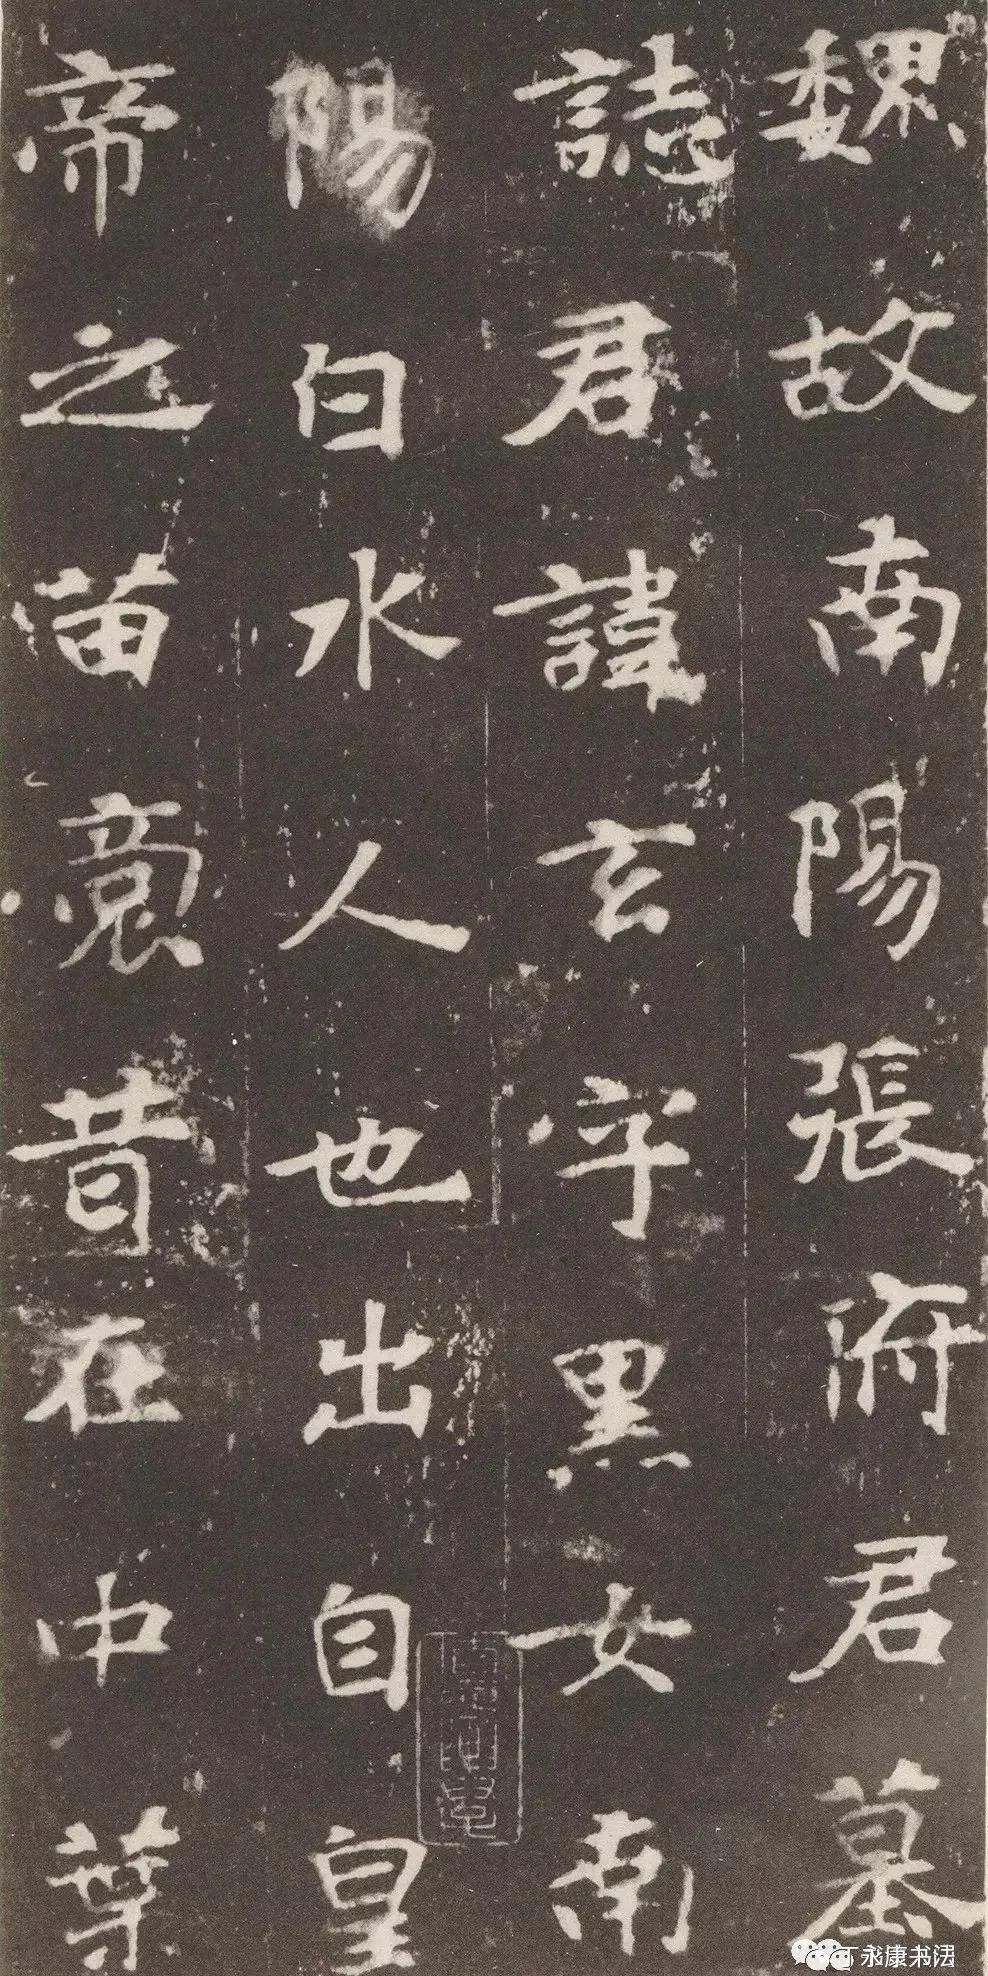 魏故南陽張府君墓
誌君諱玄字黑女南
陽白水人也出自皇
帝之苗裔昔在中葉
丁永康书法